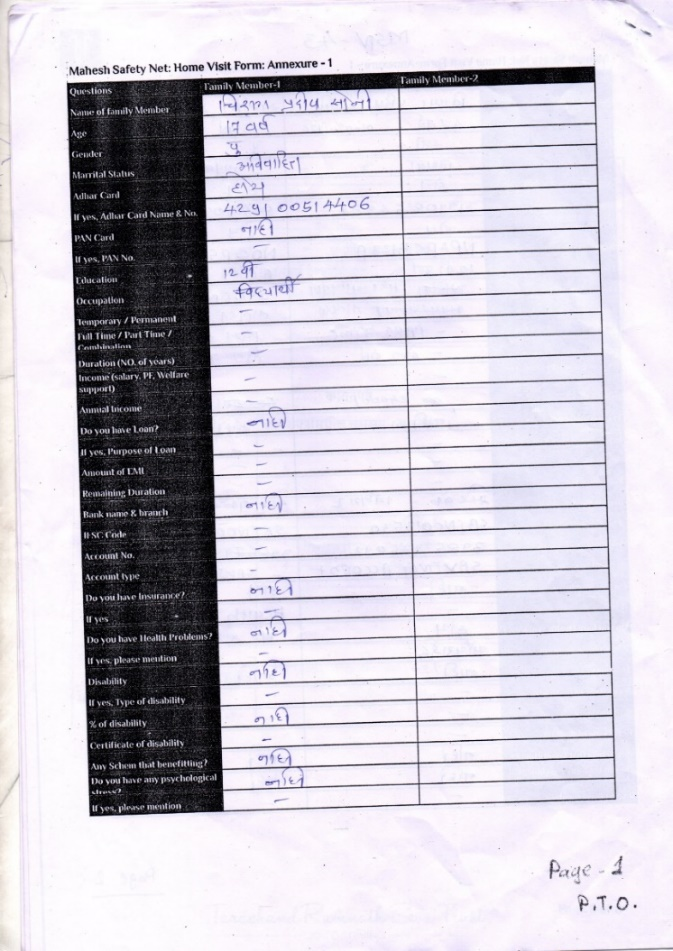 Mahesh Safety Net: Home Visit Form: Annexure - 1
Questions Family Member-1 Family Member-2
Name of family Member चिराग प्रदीप सोनी
Age 17 वर्ष
Gender पु
Marrital Status अविवाहित
Adhar Card होय
If yes, Adhar Card Name & No. 4291 0051 4406
PAN Card नाही
If yes, PAN No. –
Education 12 वी
Occupation विद्यार्थी
Temporary / Permanent –
Full Time / Part Time / Combination –
Duration (NO. of years) –
Income (salary, PF, Welfare support) –
Annual Income –
Do you have Loan? नाही
If yes, Purpose of Loan –
Amount of EMI –
Remaining Duration –
Bank name & branch नाही
IFSC Code –
Account No. –
Account type –
Do you have Insurance? नाही
If yes –
Do you have Health Problems? नाही
If yes, please mention –
Disability नाही
If yes, Type of disability –
% of disability नाही
Certificate of disability –
Any Schem that benefitting? नाही
Do you have any psychological stress? नाही
If yes, please mention –
Page - 1
P.T.O.